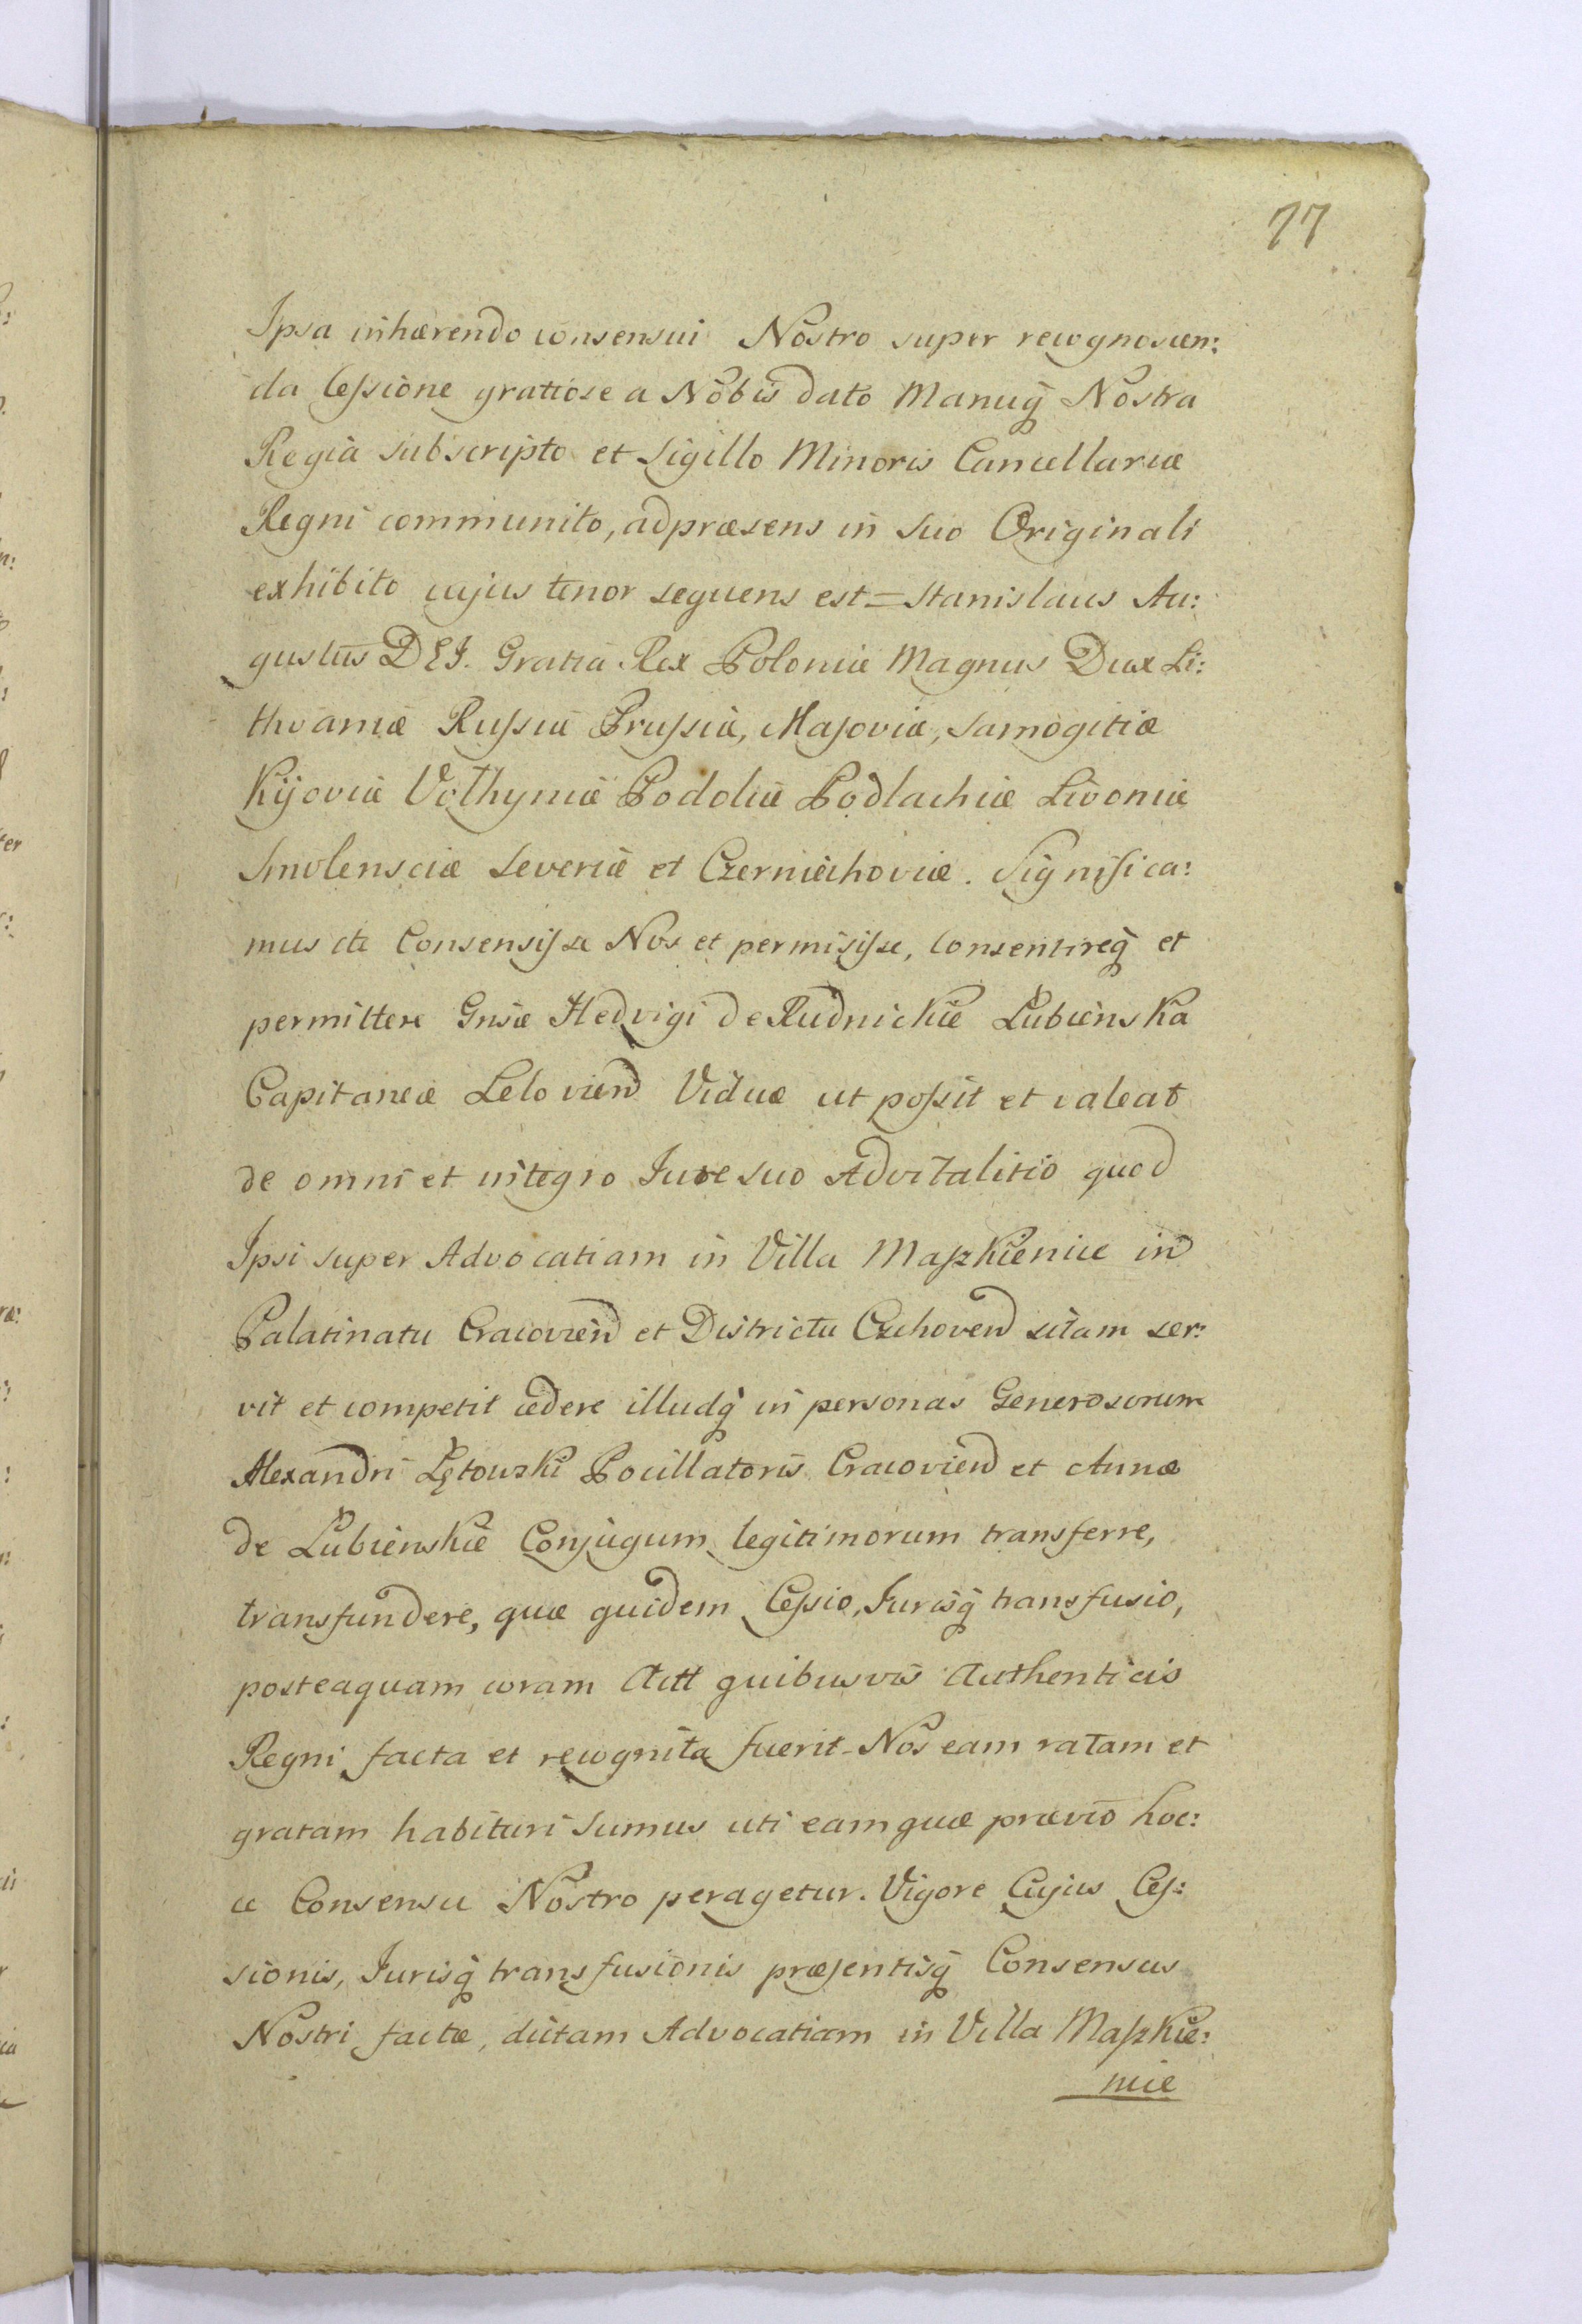 77
Ipsa inhærendo consensui Nostro super recognoscen:
da Cessione gratiose a Nobis dato Manuq̃ Nostra
Regia subscripto et Sigillo Minoris Cancellariæ
Regni communito, ad præsens in suo Originali
exhibito cujus tenor sequens est = Stanislaus Au:
gustus DEI. Gratia Rex Poloniæ Magnus Dux Li:
thvaniæ Russiæ Prussiæ, Masoviæ, Samogitiæ
Kijoviæ Volhyniæ Podoliæ Podlachiæ Livoniæ
Smolensciæ Severiæ et Czerniechoviæ. Significa:
mus etc Consensisse Nos et permisisse, Consentireq̃ et
permittere Gnsæ Hedvigi de Rudnickie Łubienska
Capitaneæ Lelovien Viduæ ut possit et valeat
de omni et integro Jure suo Advitalitio quod
Ipsi super Advocatiam in Villa Maszkienice in
Palatinatu Cracovien et Districtu Czchoven sitam ser:
vit et competit cedere illudq̃ in personas Generosorum
Alexandri Łętowski Pocillatoris Cracovien et Annæ
de Łubienskie Conjugum legitimorum transferre,
transfundere, quæ quidem Cessio, Jurisq̃ transfusio,
posteaquam coram Actt quibusvis Authenticis
Regni facta et recognita fuerit - Nos eam ratam et
gratam habituri sumus uti eam quæ prævio hoc:
ce Consensu Nostro peragetur. Vigore Cujus Ces:
sionis, Jurisq̃ transfusionis præsentisq̃ Consensus
Nostri factæ, dictam Advocatiam in Villa Maszkie:
nice